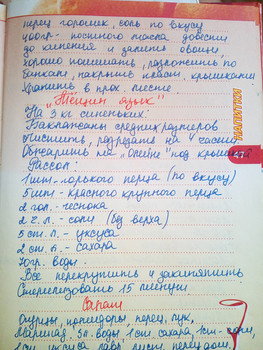 перец горошек, соль по вкусу
постного масла довести
до кипения и залить овощи,
хорошо помешать, разложить по
банкам, накрыть пласт. крышками
Хранить в прох. месте
"Тещин язык"
На 3 кг синеньких:
Баклажаны средних размеров
почистить, разрезать на 4 части
Обжарить на под крышкой
Рассол:
1 шт. горького перца (по вкусу)
5 шт. - красного крупного перца
2 гол. - чеснока
2 ч. л. - соли (без верха)
5 ст. л. - уксуса
2 ст. л. - сахара
воды.
Все перекрутить и закипятить
Стерилизовать 15 минут
Салат
Огурцы, помидоры, перец, лук,
Маринад: воды, 1 ст. сахара, соли,
1 ст. уксуса, лавр. лист, перец
НАПИТКИ